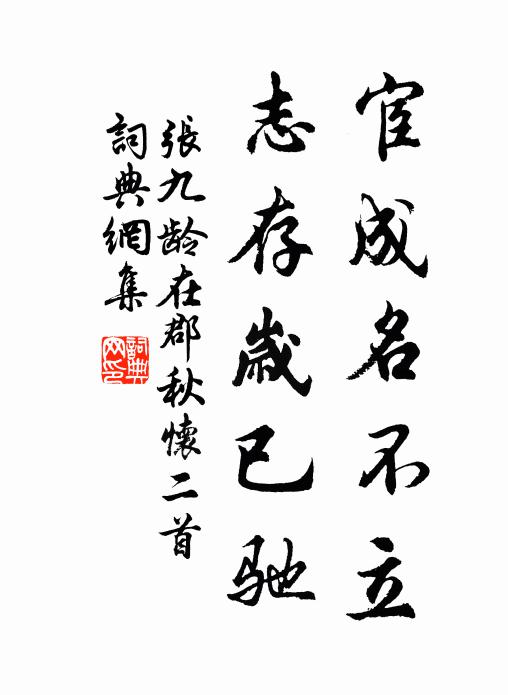 宦成名不立
志存歲已馳
張九龄在郡秋懷二首
詞典網集
詞典
网印